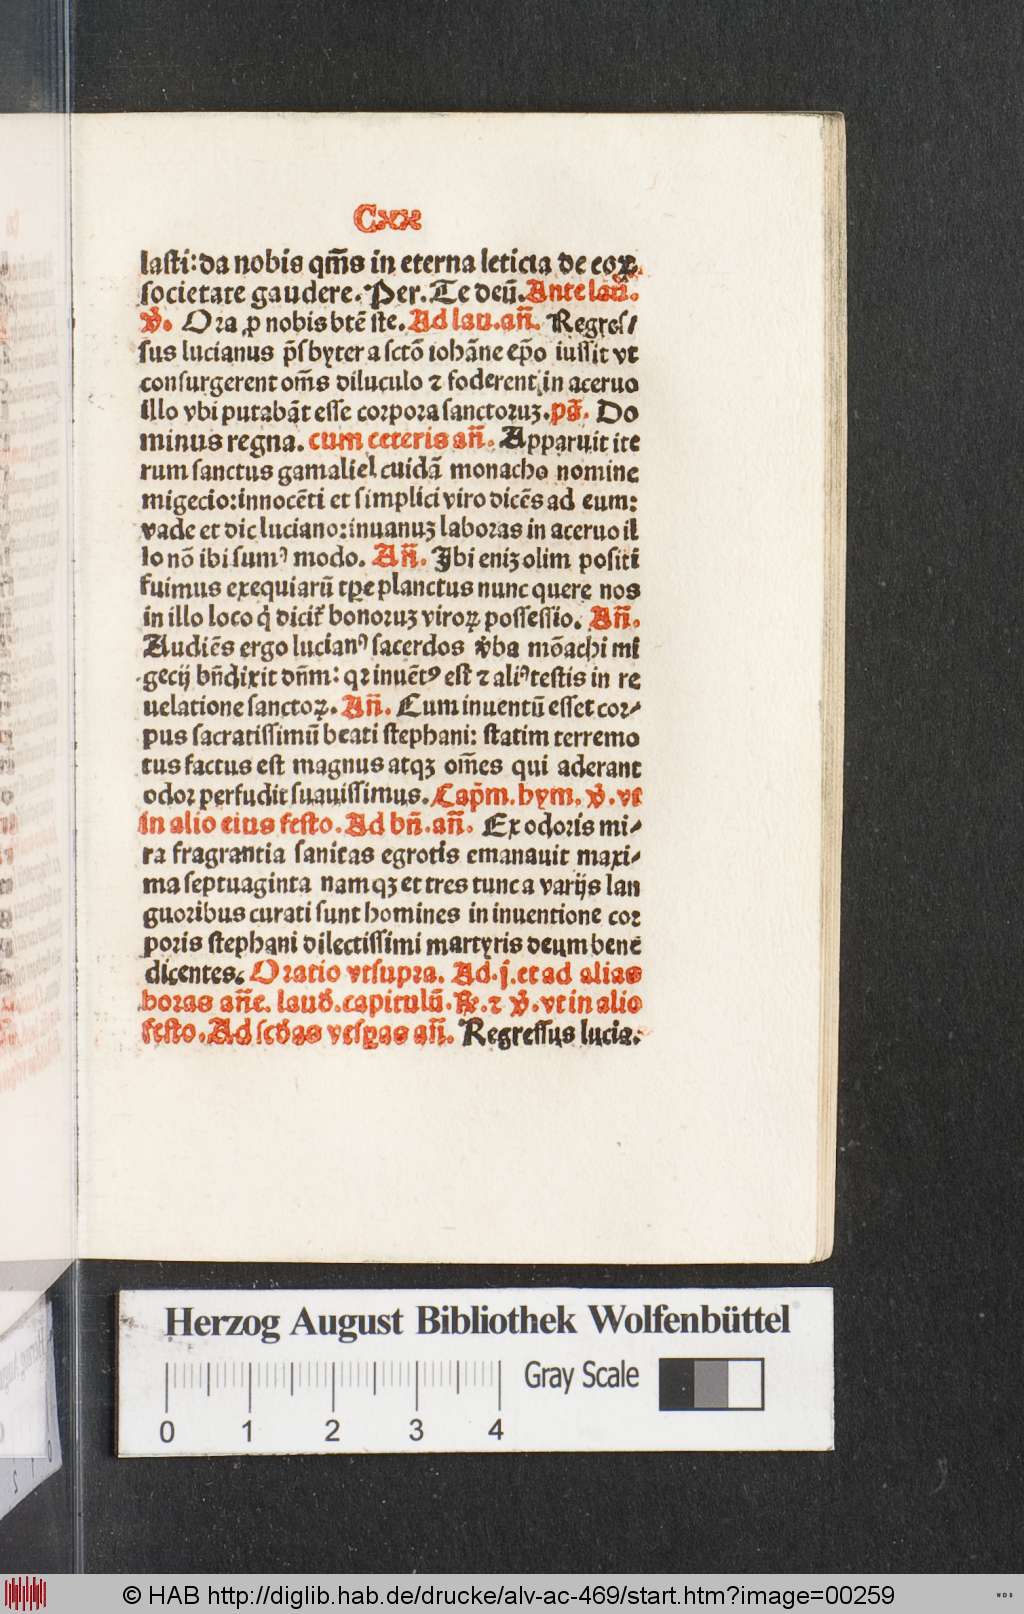 Cxx
lasti: da nobis qm̄s in eterna leticia de eoꝝ
societate gaudere. Per. Te deū. Ante lau.
V̇. Ora ꝓ nobis btē ste. Ad lau. an̄. Regres/
sus lucianus p̄sbyter a sctō iohāne ep̄o iussit vt
consurgerent om̄s diluculo ⁊ foderent in aceruo
illo vbi putabāt esse corpora sanctoruꝫ. ps̄. Do
minus regna. cum ceteris an̄. Apparuit ite
rum sanctus gamaliel cuidā monacho nomine
migecio: innocēti et simplici viro dicēs ad eum:
vade et dic luciano: inuanuꝫ laboras in aceruo il
lo nō ibi sumꝰ modo. An̄. Ibi eniꝫ olim positi
fuimus exequiarū tꝑe planctus nunc quere nos
in illo loco q̇ dicit̉ bonoruꝫ viroꝝ possessio. An̄.
Audiēs ergo lucianꝰ sacerdos v̉ba mōachi mi
gecij bn̄dixit dn̄m: qꝛ inuētꝰ est ⁊ aliꝰ testis in re
uelatione sanctoꝝ. An̄. Cum inuentū esset cor/
pus sacratissimū beati stephani: statim terremo
tus factus est magnus atqꝫ om̄es qui aderant
odor perfudit suauissimus. Cap̄m. hym. V̇. vt
in alio eius festo. Ad bn̄. an̄. Ex odoris mi/
ra fragrantia sanitas egrotis emanauit maxi/
ma septuaginta namqꝫ et tres tunc a varijs lan
guoribus curati sunt homines in inuentione cor
poris stephani dilectissimi martyris deum bene
dicentes. Oratio vt supra. Ad. j. et ad alias
horas an̄e. laud̉. capitulū. ℟. ⁊ V̇. vt in alio
festo. Ad sc̄das vesꝑas an̄. Regressus lucia:
Herzog August Bibliothek Wolfenbüttel
Gray Scale
0 1 2 3 4
© HAB http://diglib.hab.de/drucke/alv-ac-469/start.htm?image=00259